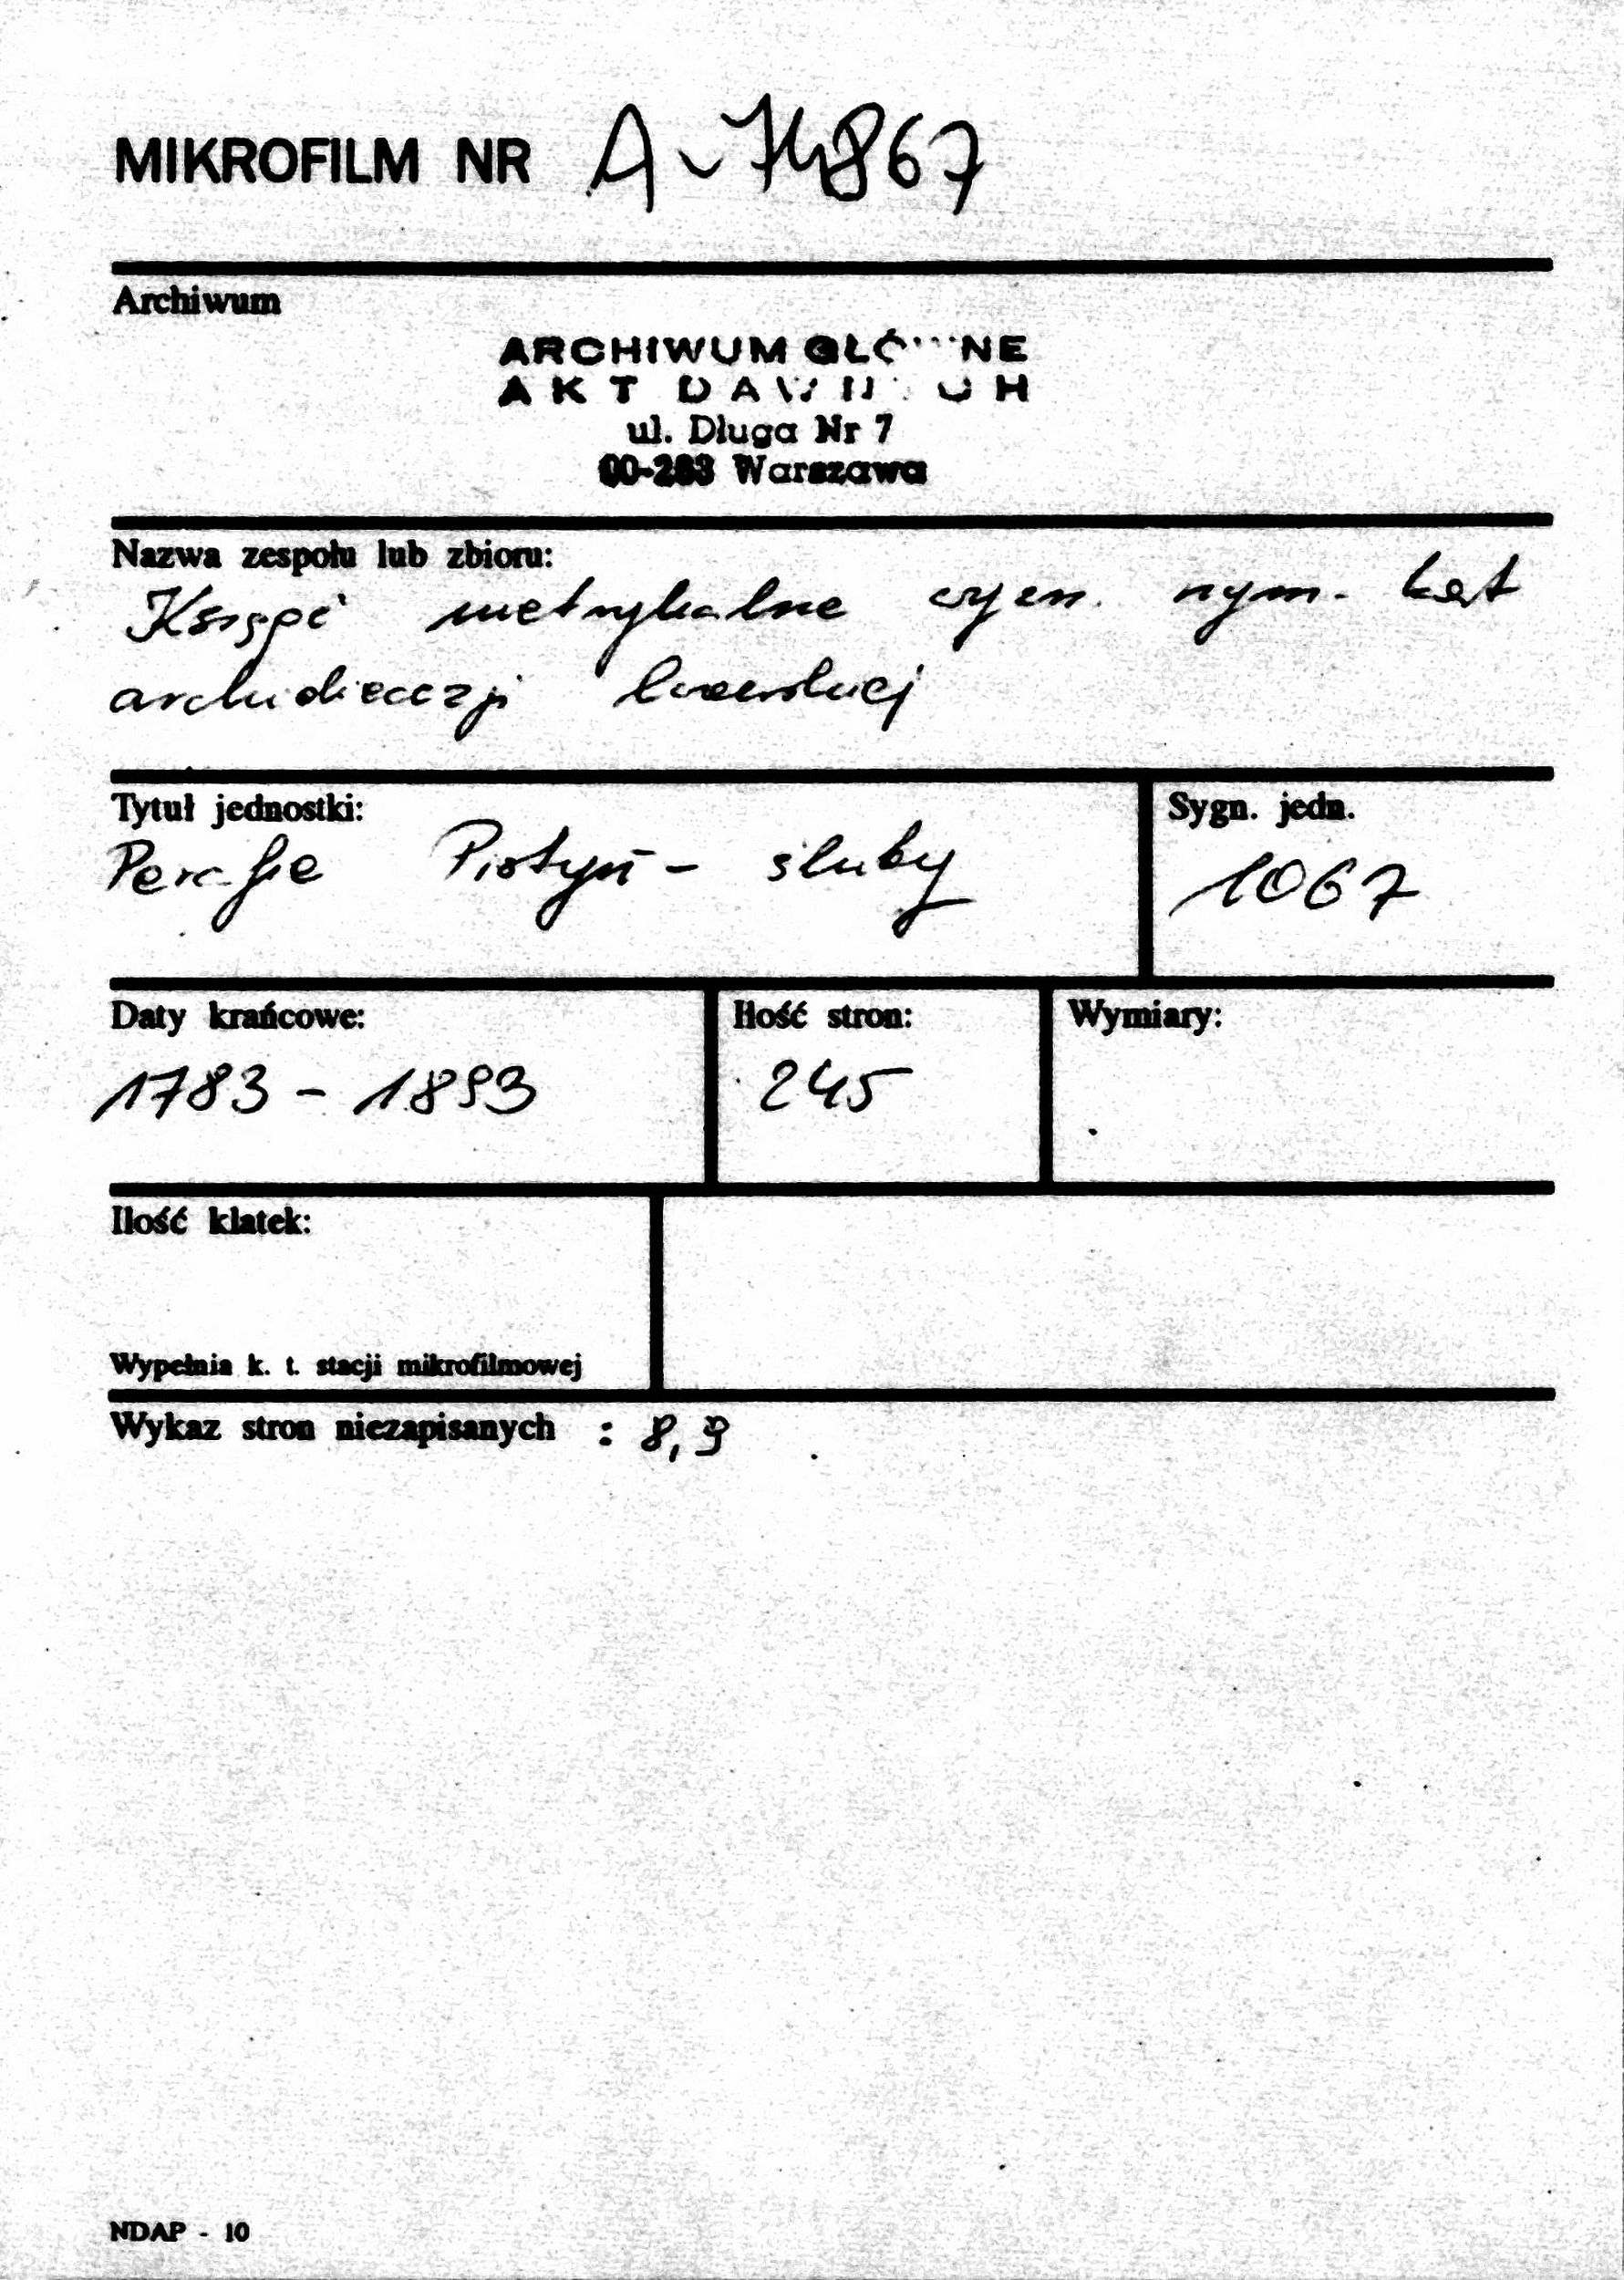 MIKROFILM NR A-74867
Archiwum
ARCHIWUM GŁÓWNE
AKT DAWNYCH
ul. Długa Nr 7
00-263 Warszawa
Nazwa zespołu lub zbioru:
Księgi metrykalne wyzn. rzym. kat
archidiecezji lwowskiej
Tytuł jednostki:
Sygn. jedn.
Parafia Pistyń - śluby
1067
Daty krańcowe:
Ilość stron:
Wymiary:
1783 - 1893
245
Ilość klatek:
Wypełnia k. t. stacji mikrofilmowej
Wykaz stron niezapisanych : 8, 9
NDAP - 10